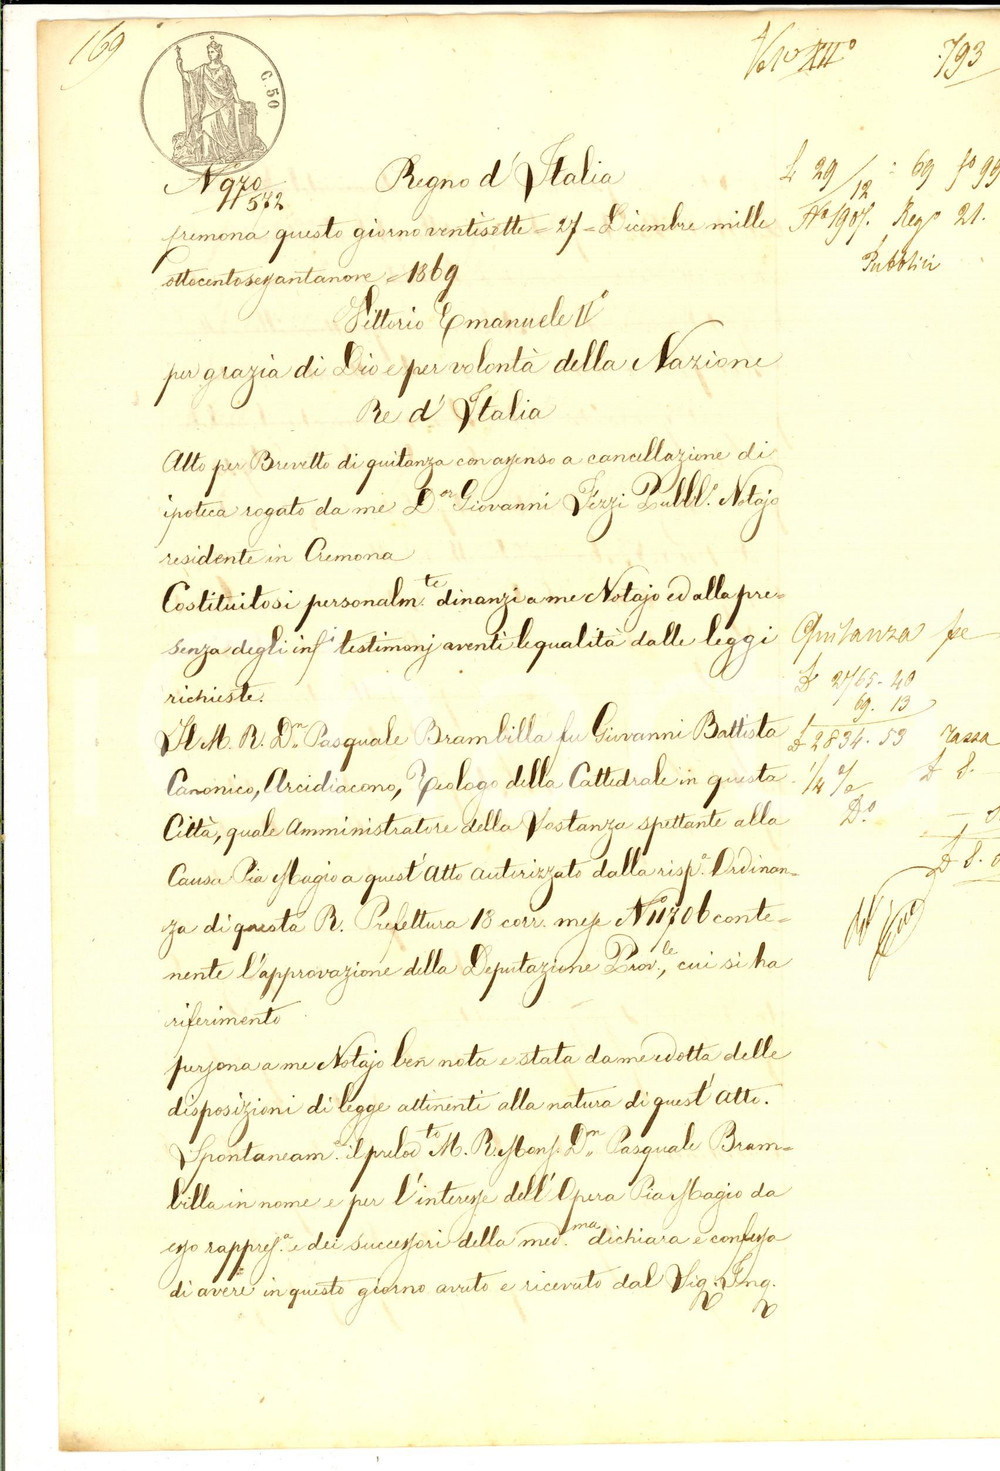 169
Vol° XII° 793
C. 50
N° 970
11572
Regno d'Italia
£ 29/12 : 69 f° 99
N° 1907. Reg° 21.
Pubblici
Cremona questo giorno ventisette = 27 = Dicembre mille
ottocentosessantanove = 1869
Vittorio Emanuele II°
per grazia di Dio e per volontà della Nazione
Re d'Italia
Atto per Brevetto di quitanza con assenso a cancellazione di
ipoteca rogato da me D.or Giovanni Fezzi Pubbl.° Notajo
residente in Cremona
Costituitosi personalm.te dinanzi a me Notajo ed alla pre=
senza degli inf.i testimonj aventi le qualità dalle leggi
richieste.
Quitanza pe
£ 2765. 40
69. 13
£ 2834. 53 Tassa
1/4 % £ 8.
D.°
£ 8.
Il M. R. D.n Pasquale Brambilla fu Giovanni Battista
Canonico, Arcidiacono, Teologo della Cattedrale in questa
Città, quale Amministratore della Sostanza spettante alla
Causa Pia Magio a quest'Atto autorizzato dalla risp.a Ordinan=
za di questa R. Prefettura 13 corr. mese N 11706 conte=
nente l'approvazione della Deputazione Prov.le, cui si ha
riferimento
persona a me Notajo ben nota e stata da me edotta delle
disposizioni di legge attinenti alla natura di quest'Atto.
Spontaneam.e il prelod.to M. R. Mons. D.n Pasquale Bram=
billa in nome e per l'interesse dell'Opera Pia Magio da
esso rappres.a e dei successori della med.ma dichiara e confessa
di avere in questo giorno avuto e ricevuto dal Sig. Ing.